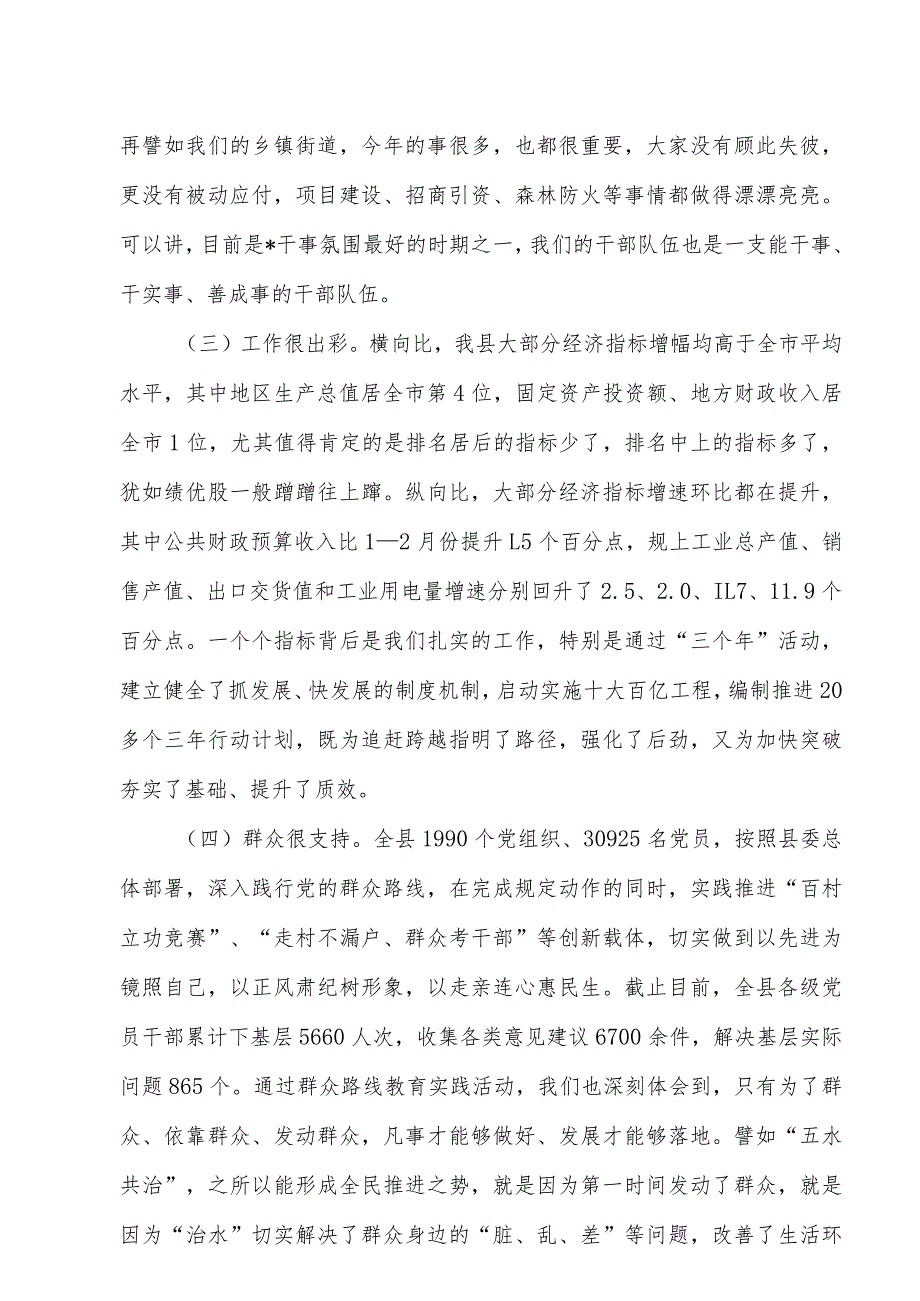 再譬如我们的乡镇街道，今年的事很多，也都很重要，大家没有顾此失彼，
更没有被动应付，项目建设、招商引资、森林防火等事情都做得漂漂亮亮。
可以讲，目前是*干事氛围最好的时期之一，我们的干部队伍也是一支能干事、
干实事、善成事的干部队伍。
（三）工作很出彩。横向比，我县大部分经济指标增幅均高于全市平均
水平，其中地区生产总值居全市第4位，固定资产投资额、地方财政收入居
全市1位，尤其值得肯定的是排名居后的指标少了，排名中上的指标多了，
犹如绩优股一般蹭蹭往上蹿。纵向比，大部分经济指标增速环比都在提升，
其中公共财政预算收入比1—2月份提升L5个百分点，规上工业总产值、销
售产值、出口交货值和工业用电量增速分别回升了2.5、2.0、IL7、11.9个
百分点。一个个指标背后是我们扎实的工作，特别是通过“三个年”活动，
建立健全了抓发展、快发展的制度机制，启动实施十大百亿工程，编制推进20
多个三年行动计划，既为追赶跨越指明了路径，强化了后劲，又为加快突破
夯实了基础、提升了质效。
（四）群众很支持。全县1990个党组织、30925名党员，按照县委总
体部署，深入践行党的群众路线，在完成规定动作的同时，实践推进“百村
立功竞赛”、“走村不漏户、群众考干部”等创新载体，切实做到以先进为
镜照自己，以正风肃纪树形象，以走亲连心惠民生。截止目前，全县各级党
员干部累计下基层5660人次，收集各类意见建议6700余件，解决基层实际
问题865个。通过群众路线教育实践活动，我们也深刻体会到，只有为了群
众、依靠群众、发动群众，凡事才能够做好、发展才能够落地。譬如“五水
共治”，之所以能形成全民推进之势，就是因为第一时间发动了群众，就是
因为“治水”切实解决了群众身边的“脏、乱、差”等问题，改善了生活环